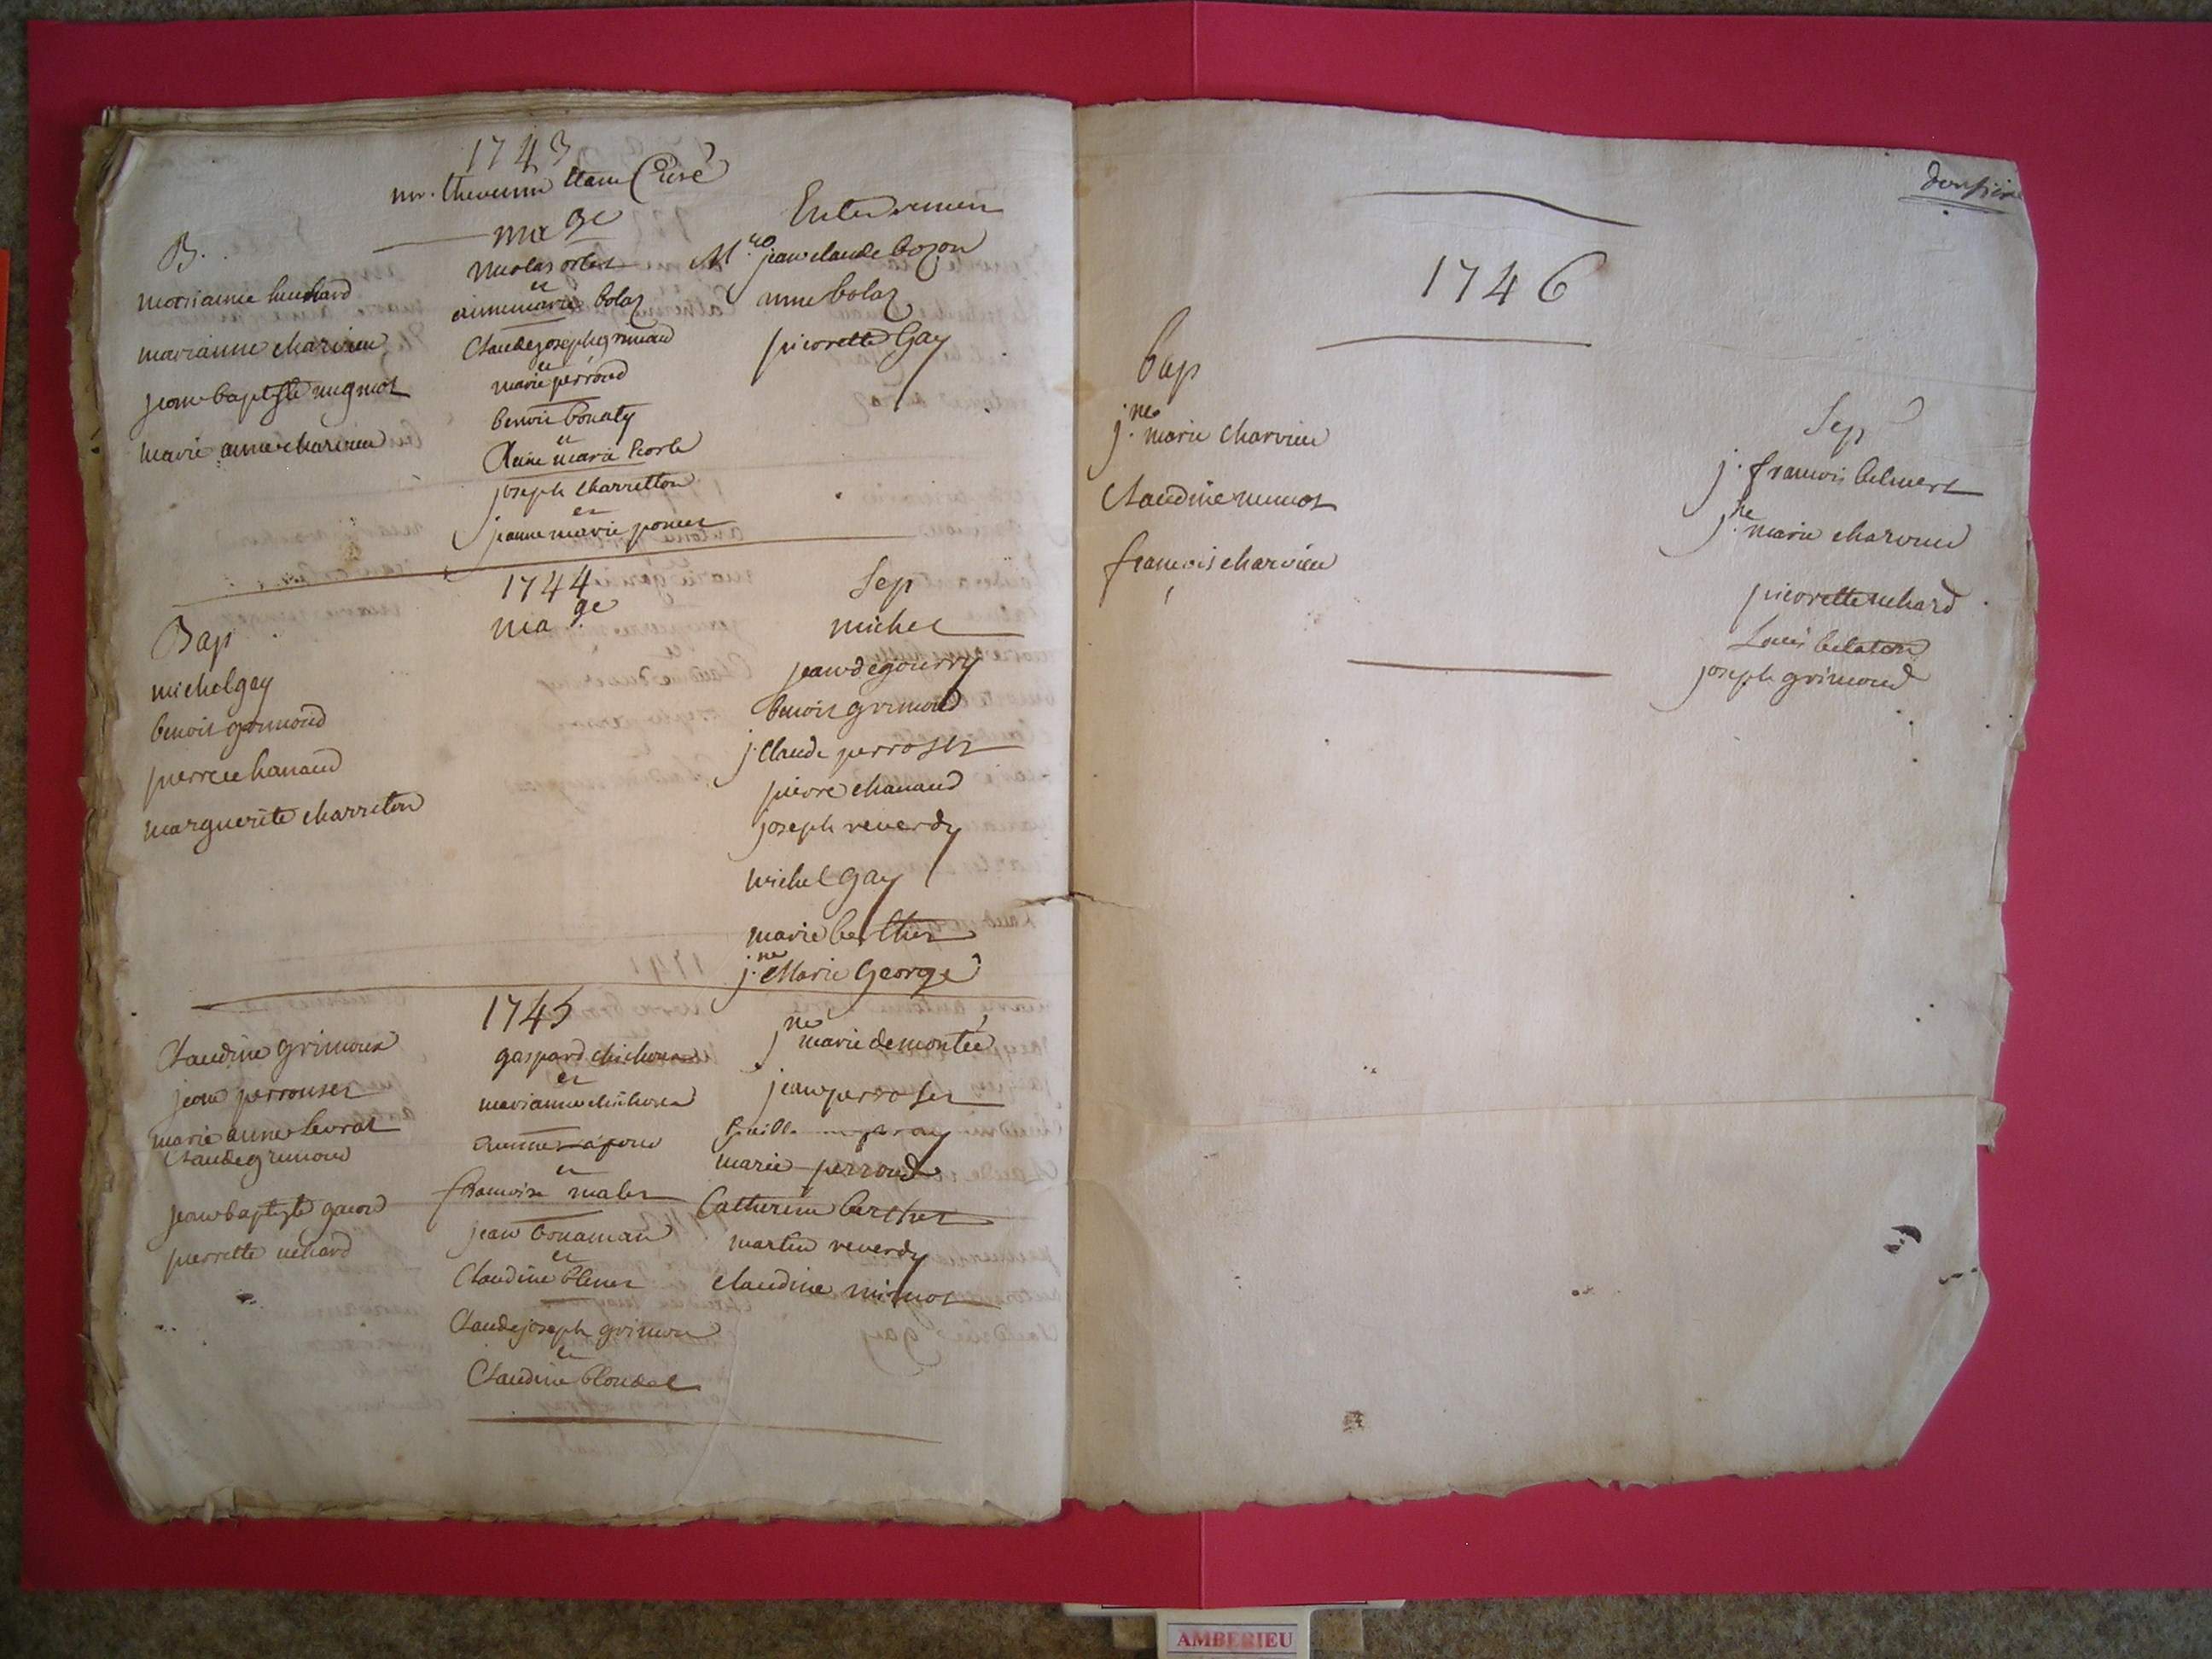 1743
mr. thevenin etant Curé
B.
marianne huchard
marianne charvieu
jean baptiste mignot
marie anne charvieu
mage
nicolas orlet
et
annemarie bolaz
Claude joseph grimaud
et
marie perroud
benoit bonaty
et
Anne marie
joseph charretton
et
jeanne marie poncet
Enterremen
Mre jean claude bozon
anne bolaz
pierrette Gay
1744
Bap
michel gay
benoit grimoud
pierre chanaud
marguerite charreton
mage
Sep
michel
jean degourry
benoit grimoud
j. Claude perroset
pierre chanaud
joseph reverdy
michel Gay
marie berthet
j.ne Marie George
1745
Claudine grimoux
jean perrouset
marie anne levrat
Claude grimoud
jean baptiste gacond
pierrette uchard
gaspard chichoux
et
marianne chichoux
et
francoise malet
jean bonaman
et
Claudine blenet
Claude joseph grimou
et
Claudine blondel
j.ne marie demontée
jean perroset
marie perroud
Catherine berthet
martin reverdy
claudine mimot
donssieu
1746
bap
j.ne marie charvieu
Claudine mimot
francois charvieu
Sep
j. francois belmert
j.ne marie charvieu
pierrette uchard
Louis belaton
joseph grimoud
AMBERIEU